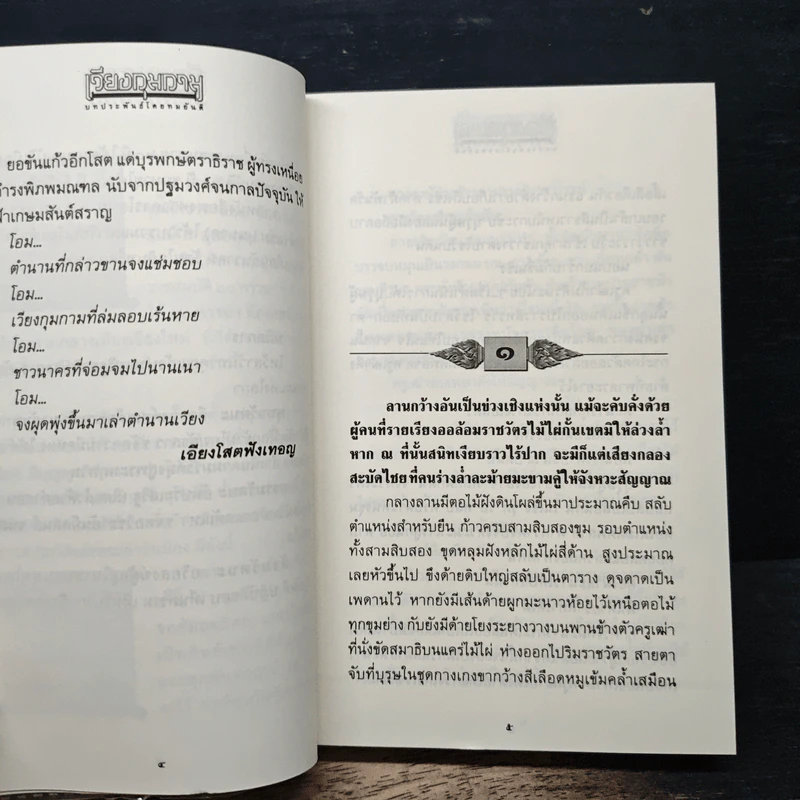 เวียงกุมกาม
บทประพันธ์โดยทมยันตี
ยอขันแก้วอีกโสต แด่บุรพกษัตราธิราช ผู้ทรงเหนื่อย
ดำรงพิภพมณฑล นับจากปฐมวงศ์จนกาลปัจจุบัน ให้
ฟ้าเกษมสันต์สราญ
โอม...
ตำนานที่กล่าวขานจงแช่มชอบ
โอม...
เวียงกุมกามที่ล่มลอบเร้นหาย
โอม...
ชาวนาครที่จ่อมจมไปนานเนา
โอม...
จงผุดพุ่งขึ้นมาเล่าตำนานเวียง
เอียงโสตฟังเทอญ
๔
๑
ลานกว้างอันเป็นข่วงเชิงแห่งนั้น แม้จะคับคั่งด้วย
ผู้คนที่รายเรียงออล้อมราชวัตรไม้ไผ่กั้นเขตมิให้ล่วงล้ำ
หาก ณ ที่นั้นสนิทเงียบราวไร้ปาก จะมีก็แต่เสียงกลอง
สะบัดไชยที่คนร่างล่ำละม้ายมะขามคู้ให้จังหวะสัญญาณ
กลางลานมีตอไม้ฝังดินโผล่ขึ้นมาประมาณคืบ สลับ
ตำแหน่งสำหรับยืน ก้าวครบสามสิบสองขุม รอบตำแหน่ง
ทั้งสามสิบสอง ขุดหลุมฝังหลักไม้ไผ่สี่ด้าน สูงประมาณ
เลยหัวขึ้นไป ขึงด้ายดิบใหญ่สลับเป็นตาราง ดุจดาดเป็น
เพดานไว้ หากยังมีเส้นด้ายผูกมะนาวห้อยไว้เหนือตอไม้
ทุกขุมย่าง กับยังมีด้ายโยงระยางวางบนพานข้างตัวครูเฒ่า
ที่นั่งขัดสมาธิบนแคร่ไม้ไผ่ ห่างออกไปริมราชวัตร สายตา
จับที่บุรุษในชุดกางเกงขากว้างสีเลือดหมูเข้มคล้ำเสมือน
๕